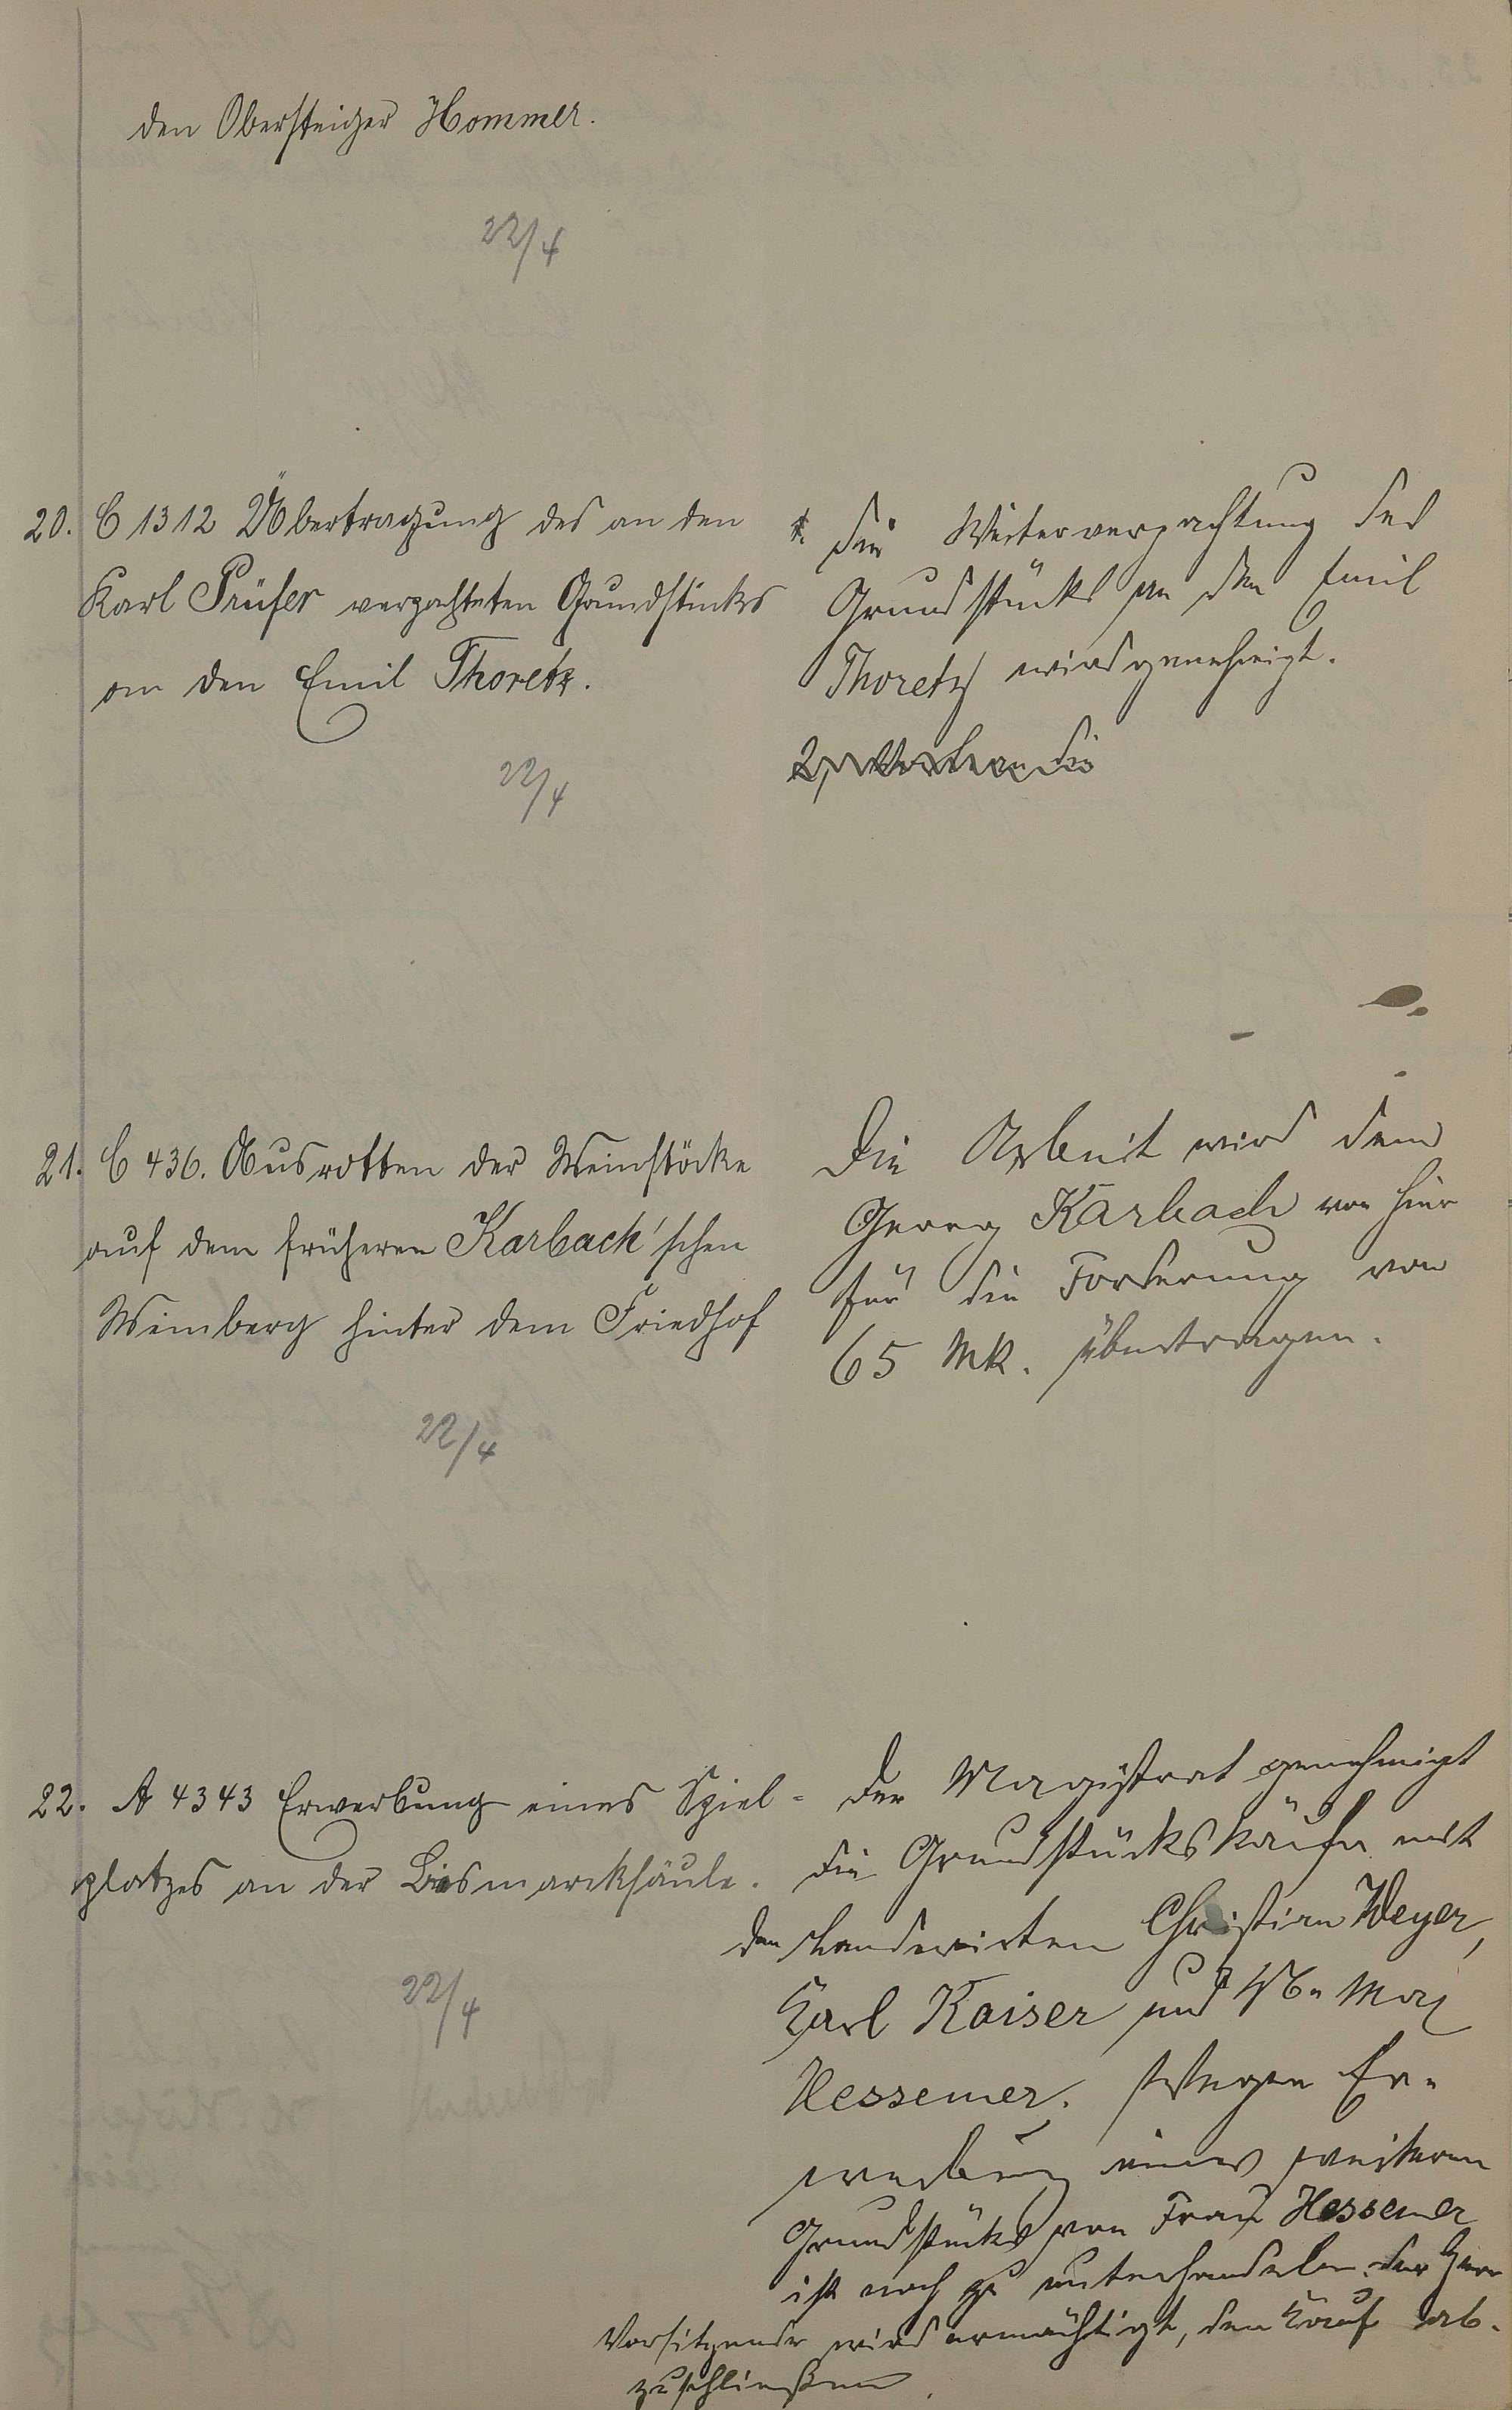 den Obersteiger Hommer.
22/4
20. C 1312 Übertragung des an den
Karl Prüfer verpachteten Grundstücks
an den Emil Thoretz.
22/4
Die Weiterverpachtung des
Grundstücks an den Emil
Thoretz wird genehmigt.
2,
21. C 436. Ausrotten der Weinstöcke
auf dem früheren Karbach'schen
Weinberg hinter dem Friedhof
22/4
Die Arbeit wird dem
Georg Karbach von hier
für die Forderung von
65 Mk. übertragen.
22. A 4343 Erwerbung eines Spiel-
platzes an der Bismarcksäule.
22/4
Der Magistrat genehmigt
die Grundstückskäufe mit
den Landwirten Christian Weyer,
Karl Kaiser und
Hessemer. Wegen Er-
werbung eines weiteren
Grundstücks von Frau Hessemer
ist noch zu unterhandeln. Der Herr
Vorsitzende wird ermächtigt, den Kauf ab-
zuschließen.